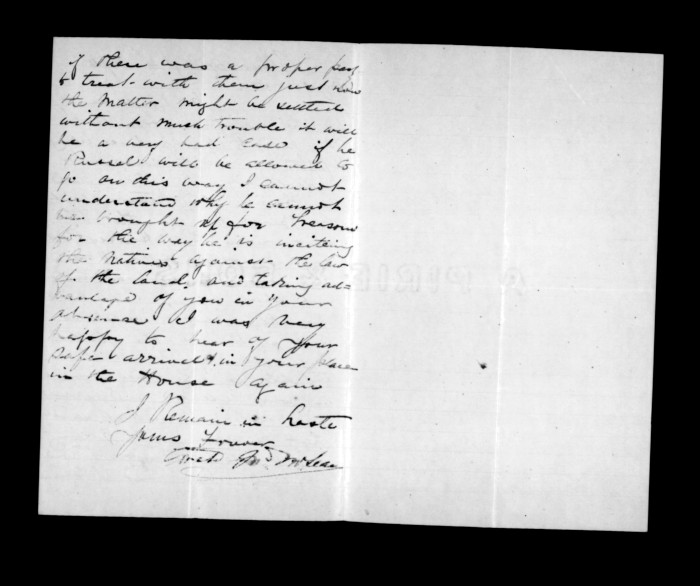 if there was a proper party
to treat with them just now
the Matter might be settled
without much trouble it will
be a very bad Case if he
Russel will be allowed to
go on this way I cannot
understand why he cannot
be brought up for Treason
for the way he is inciting
the Natives against the law
of the land, and taking ad=
vantage of you in your
absence I was very
happy to hear of your
safe arrival & in your place
in the House again
I Remain in haste
yours Forever
McLean
A PIRIE & SONS